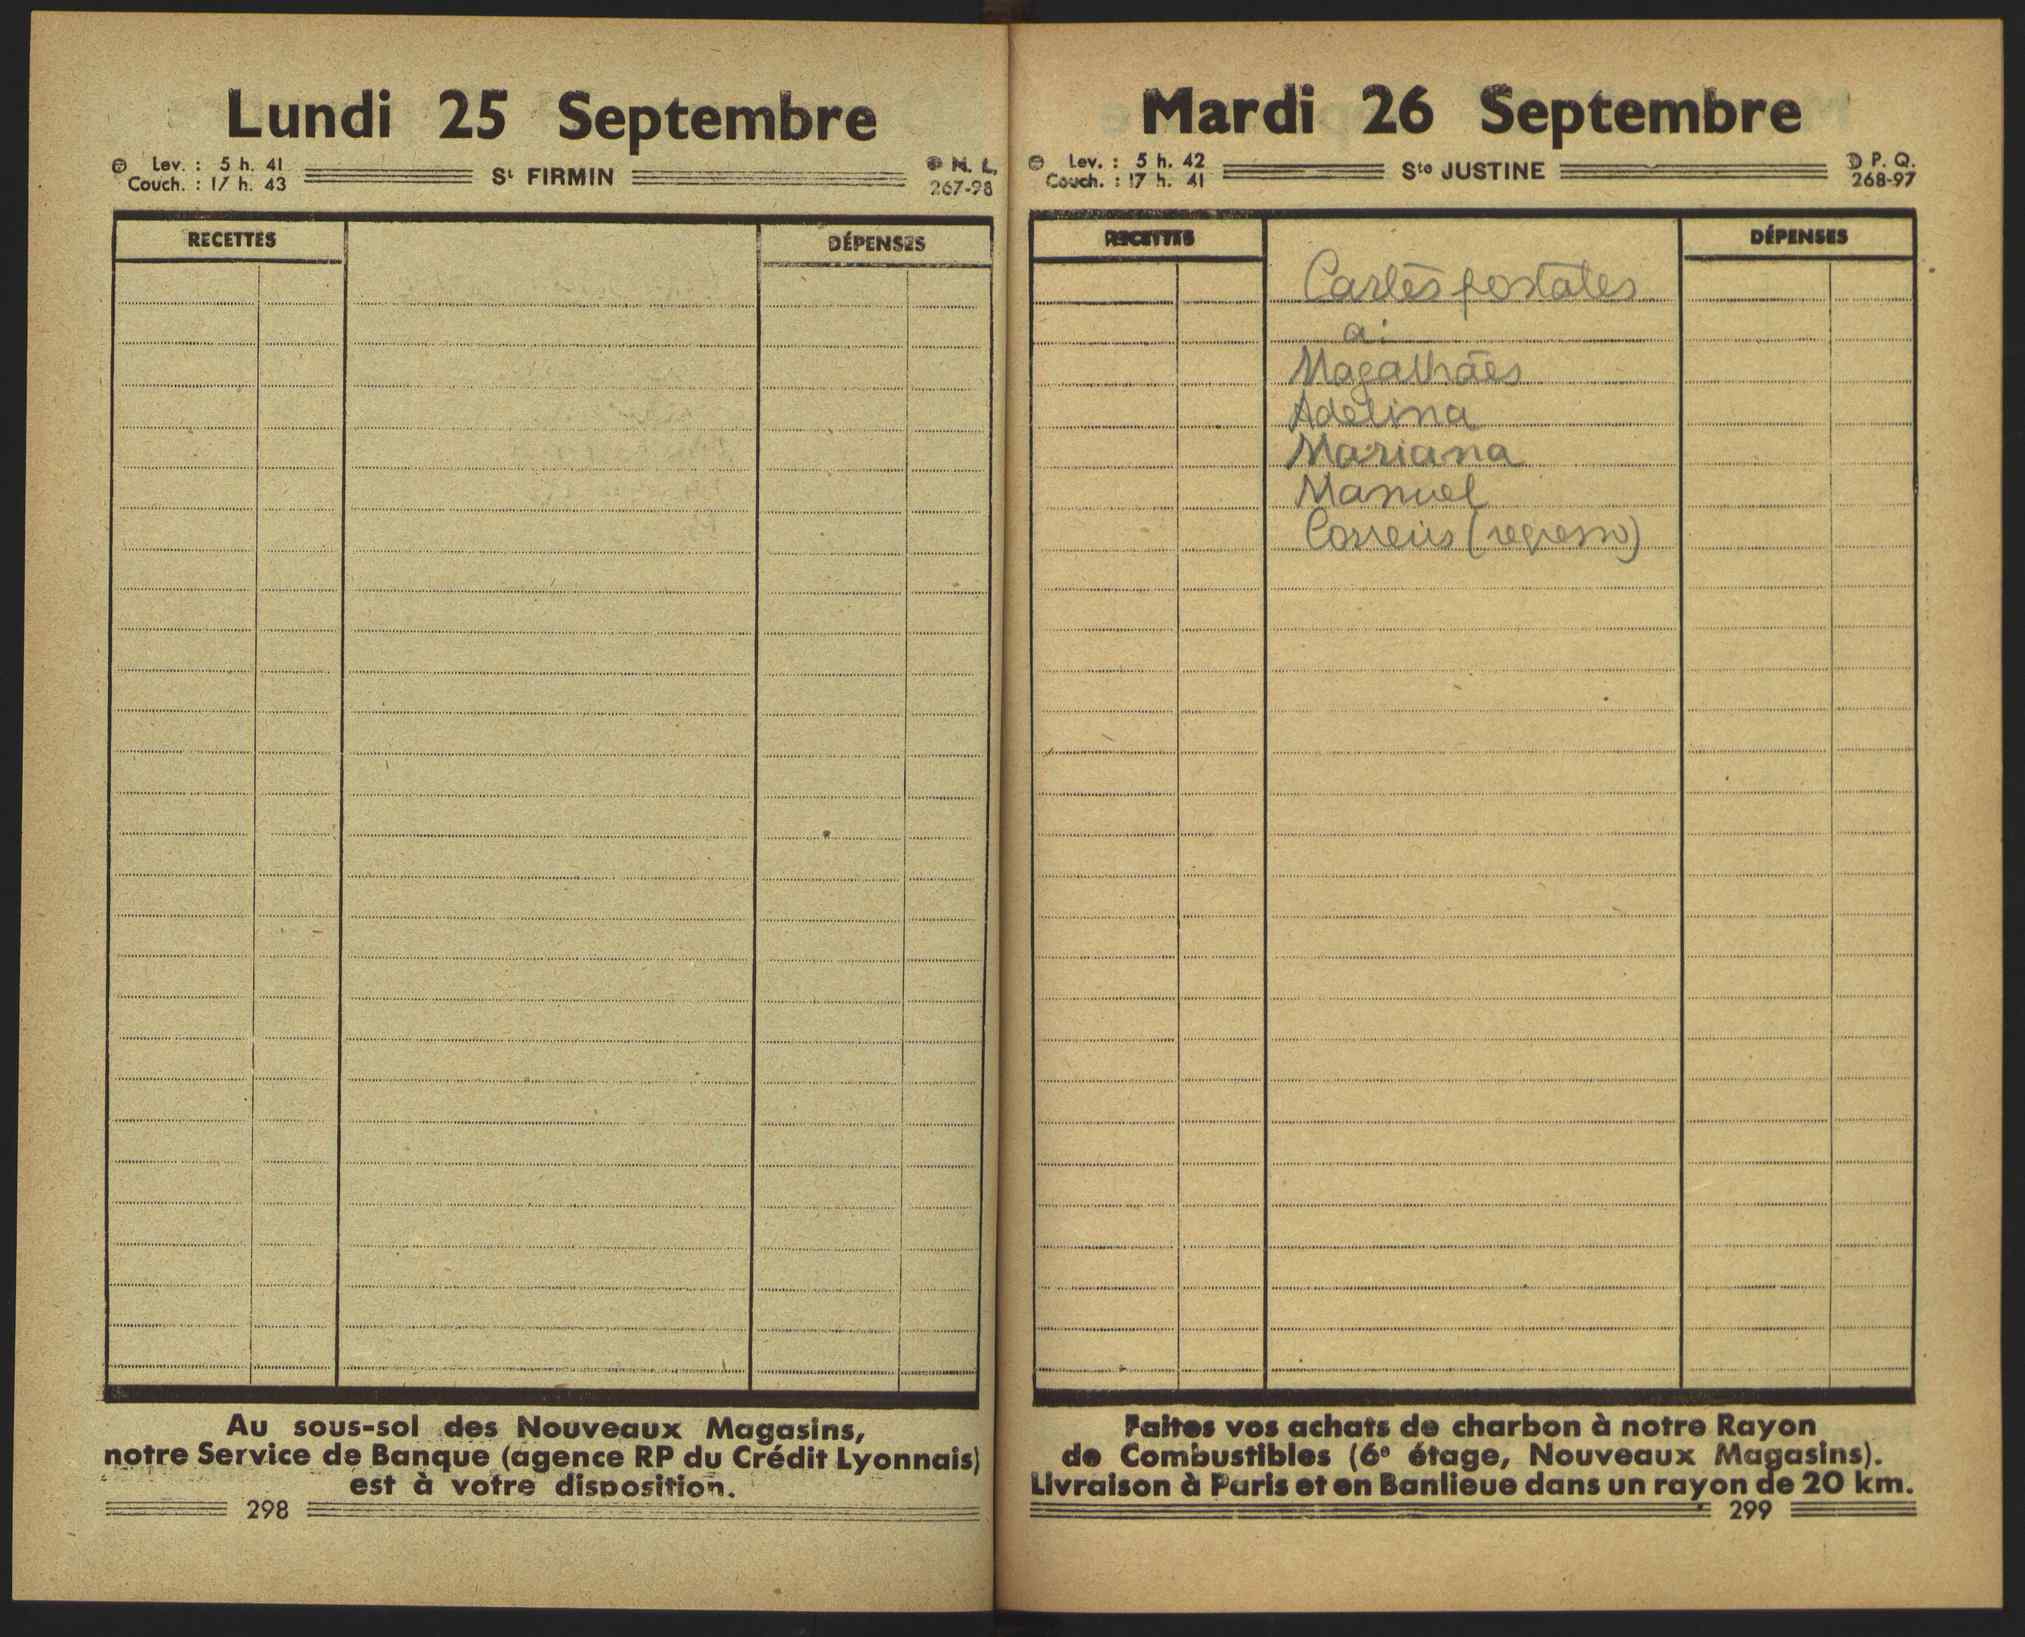 Lundi 25 Septembre
Lev. : 5 h. 41
Couch. : 17 h. 43
St FIRMIN
N. L.
267-98
RECETTES
DÉPENSES
Au sous-sol des Nouveaux Magasins,
notre Service de Banque (agence RP du Crédit Lyonnais)
est à votre disposition.
298
Mardi 26 Septembre
Lev. : 5 h. 42
Couch. : 17 h. 41
Ste JUSTINE
P. Q.
268-97
RECETTES
DÉPENSES
Cartes postales
a:
Magalhães
Adelina
Mariana
Manuel
Correius (regresso)
Faites vos achats de charbon à notre Rayon
de Combustibles (6e étage, Nouveaux Magasins).
Livraison à Paris et en Banlieue dans un rayon de 20 km.
299